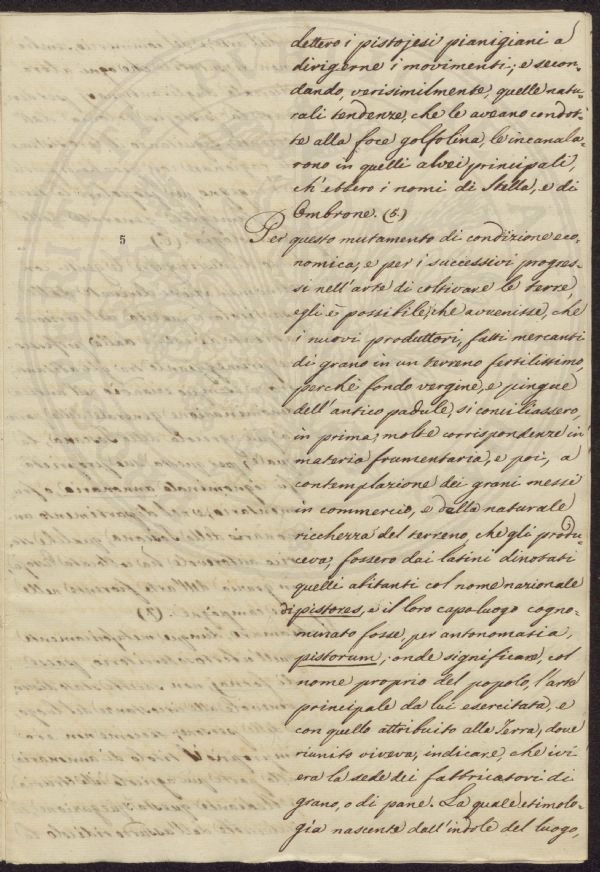 dettero i pistojesi pianigiani a
dirigerne i movimenti; e secon-
dando, verisimilmente, quelle natu-
rali tendenze, che le aveano condot-
te alla foce golfolina, le incanala-
rono in quelli alvei principali,
ch'ebbero i nomi di Stella, e di
Ombrone. (5.)
5
Per questo mutamento di condizione eco-
nomica, e per i successivi progres-
si nell'arte di coltivare le terre,
egli è possibile, che avvenisse, che
i nuovi produttori, fatti mercanti
di grano in un terreno fertilissimo,
perché fondo vergine, e pingue
dell'antico padule, si conciliassero,
in prima, molte corrispondenze in
materia frumentaria, e poi, a
contemplazione dei grani messi
in commercio, e dalla naturale
ricchezza del terreno, che gli produ-
ceva, fossero dai latini dinotati
quelli abitanti col nome nazionale
di pistores, e il loro capo-luogo cogno-
minato fosse, per antonomasia,
pistorum; onde significare, col
nome proprio del popolo, l'arte
principale da lui esercitata, e
con quello attribuito alla Terra, dove
riunito viveva, indicare, che ivi
era la sede dei fabbricatori di
grano, o di pane. La quale etimolo-
gia nascente dall'indole del luogo,